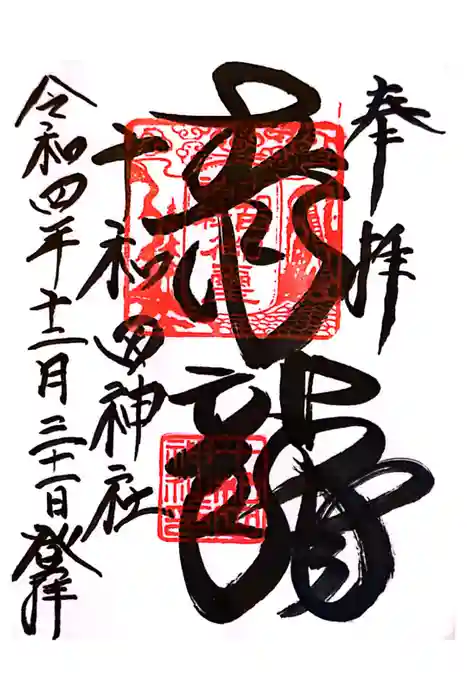 奉拝
龍
十和田神社
令和四年十二月三十一日登拝